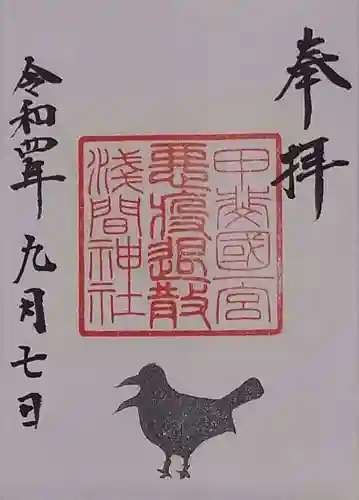 奉拝
甲斐國一宮
悪疫退散
浅間神社
令和四年九月七日